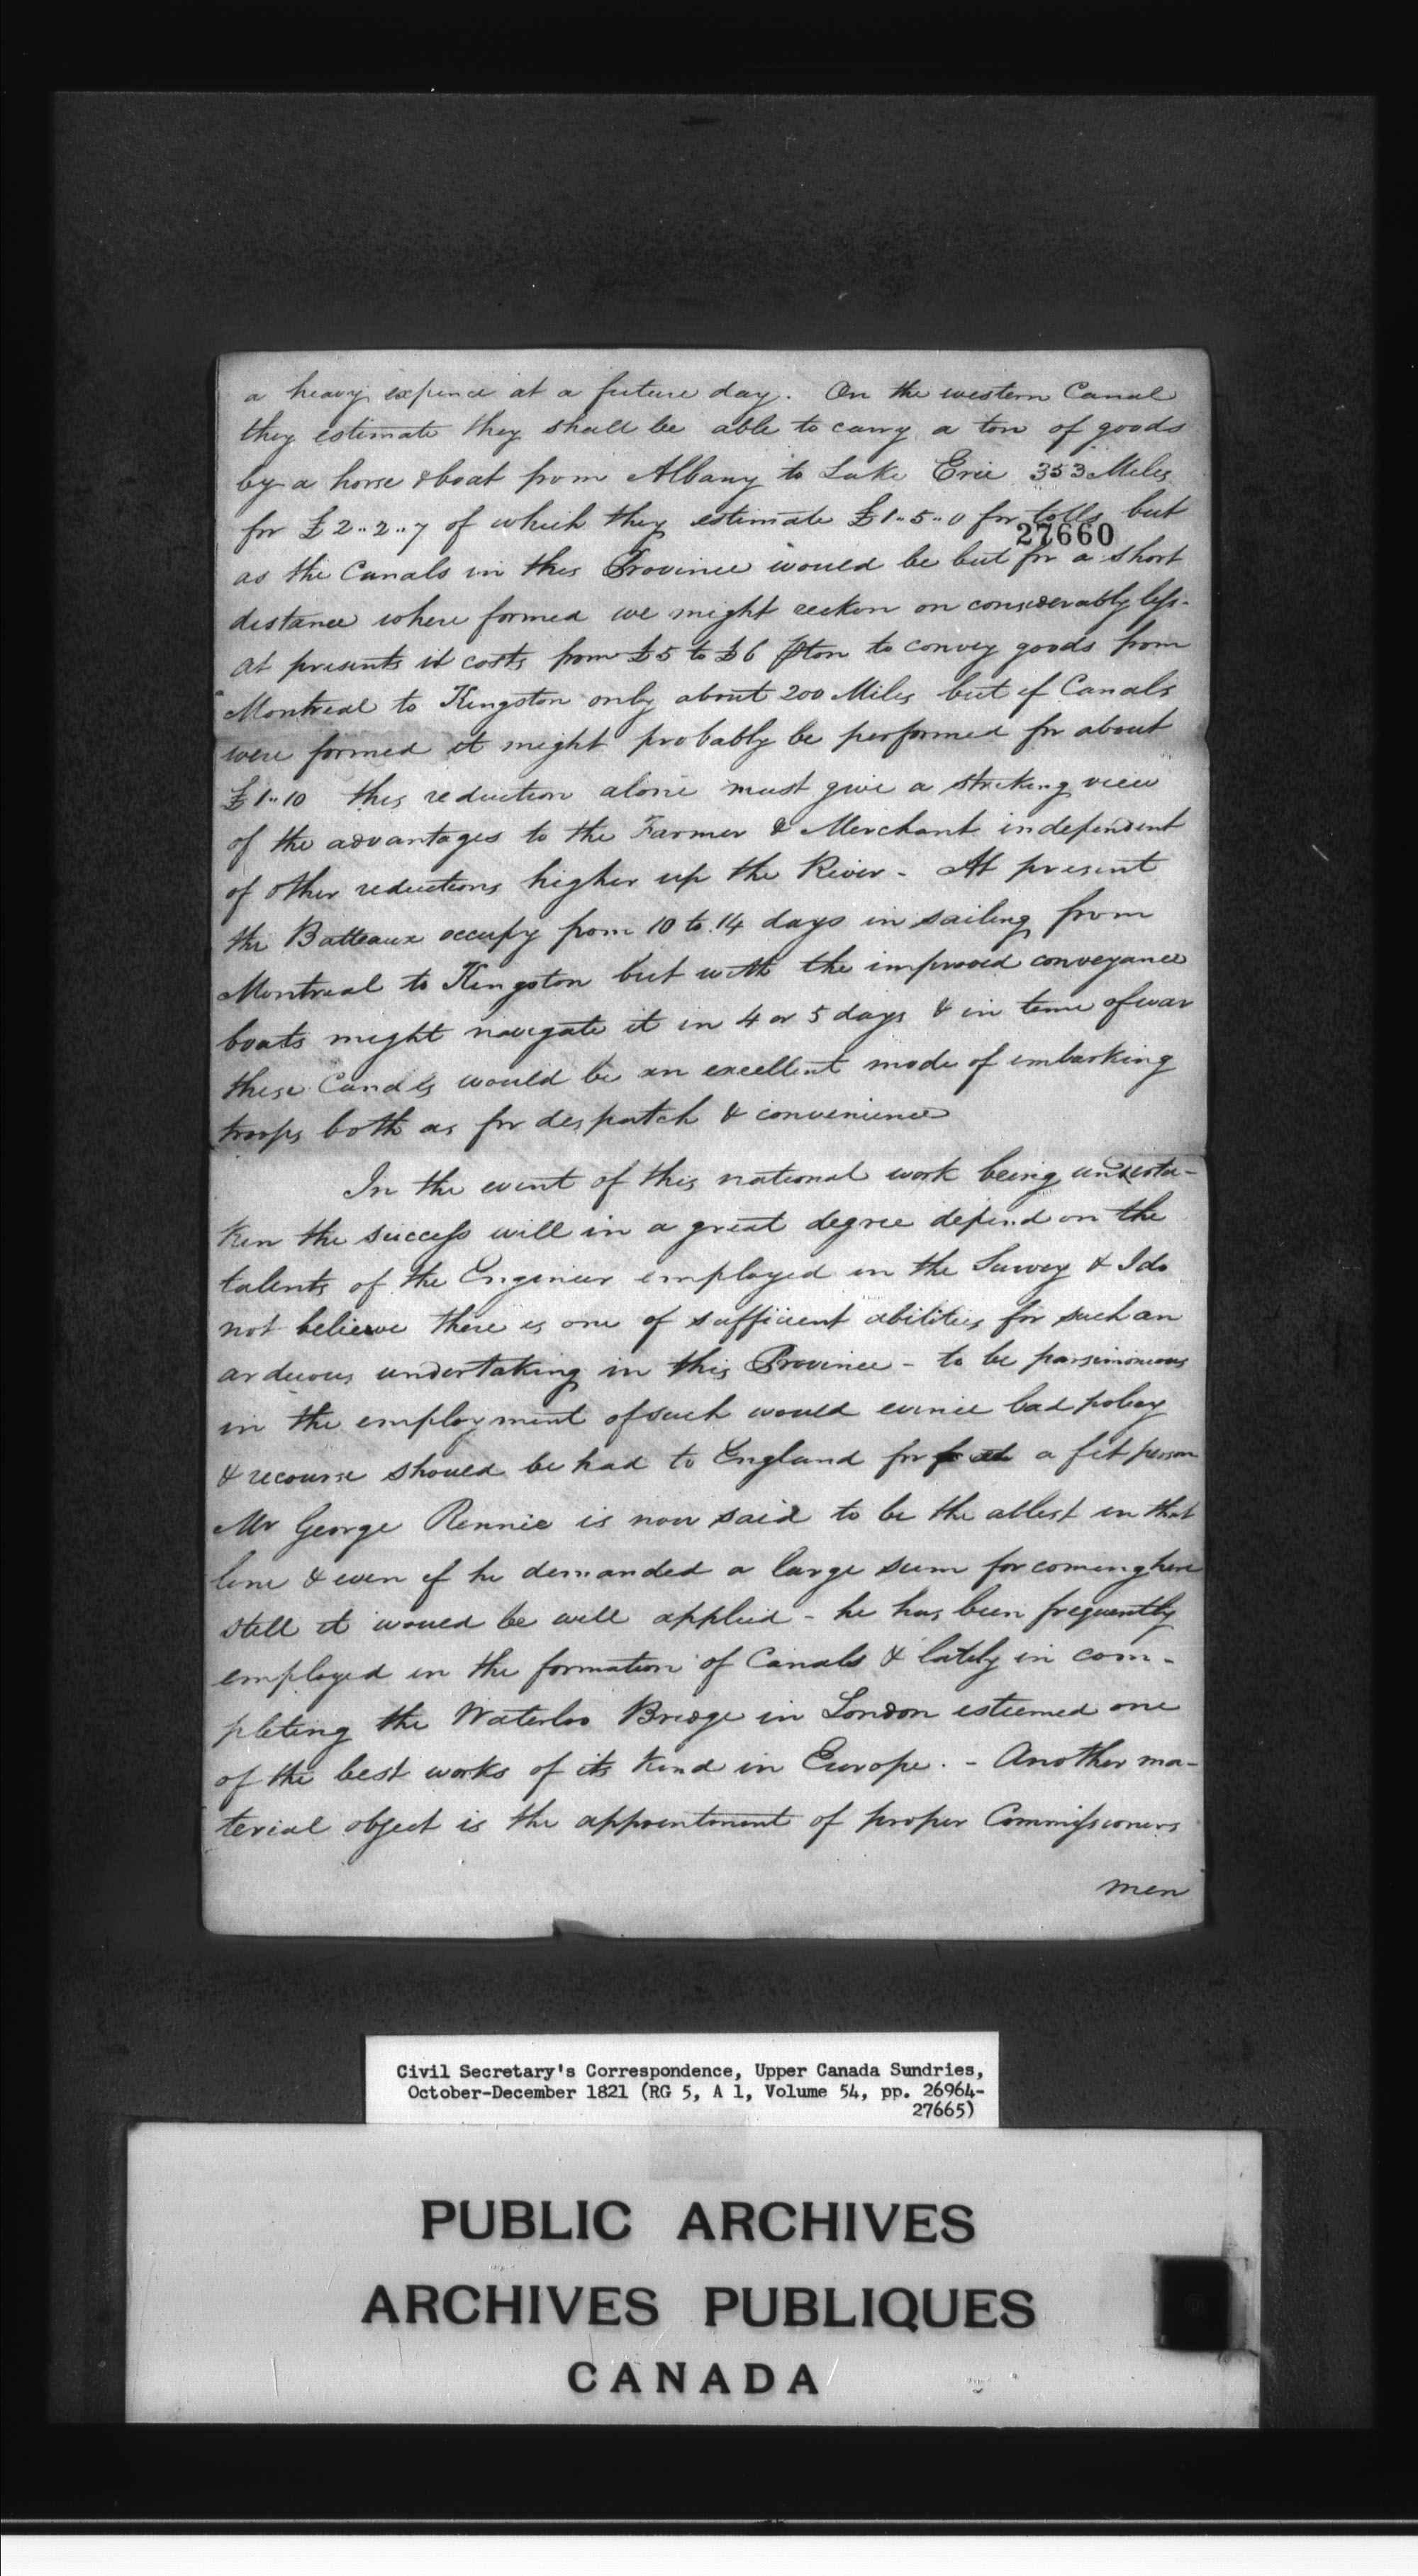 a heavy expence at a future day. On the western Canal
they estimate they shall be able to carry a ton of goods
by a horse & boat from Albany to Lake Erie 353 Miles
for £2..2..7 of which they estimate £1..5..0 for tolls but
27660
as the Canals in this Province would be but for a short
distance where formed we might reckon on considerably less-
At presents it costs from £5 to £6 p ton to convey goods from
Montreal to Kingston only about 200 Miles but if Canals
were formed it might probably be performed for about
£1..10 this reduction alone must give a striking view
of the advantages to the Farmer & Merchant independent
of other reductions higher up the River - At present
the Batteaux occupy from 10 to 14 days in sailing from
Montreal to Kingston but with the improved conveyance
boats might navigate it in 4 or 5 days & in time of war
these Canals would be an excellent mode of embarking
troops both as for despatch & convenience
In the event of this national work being underta-
ken the success will in a great degree depend on the
talents of the Engineer employed in the Survey & I do
not believe there is one of sufficient abilities for such an
arduous undertaking in this Province - to be parsimoneous
in the employment of such would evince bad policy
& recourse should be had to England for a fit person
Mr George Rennie is now said to be the ablest in that
line & even if he demanded a large sum for coming here
still it would be well applied - he has been frequently
employed in the formation of Canals & lately in com-
pleting the Waterloo Bridge in London esteemed one
of the best works of its kind in Europe. - Another ma-
terial object is the appointment of proper Commissioners
men
Civil Secretary's Correspondence, Upper Canada Sundries,
October-December 1821 (RG 5, A 1, Volume 54, pp. 26964-
27665)
PUBLIC ARCHIVES
ARCHIVES PUBLIQUES
CANADA